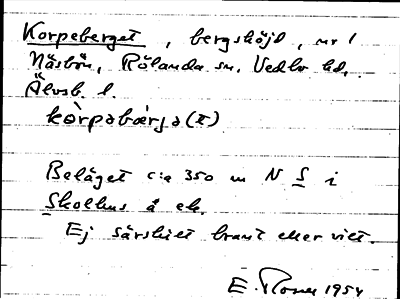 Korpeberget, bergshöjd, nr 1
Näsbön, Rölanda sn, Vedbo hd,
Älvsb. l.
kòrpəbærjə(t)
Beläget c:a 350 m N S i
Skolhus å ek.
Ej särskilt brant eller vilt.
E. 1954